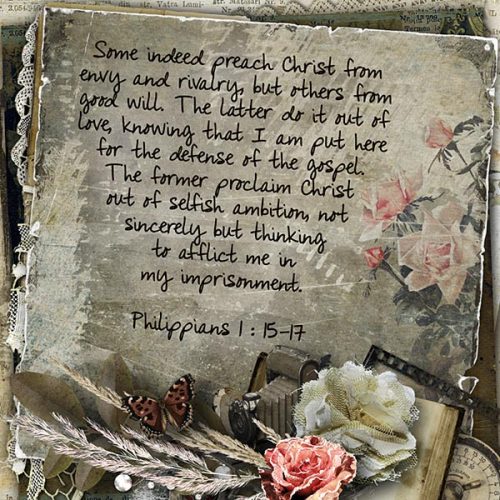 Some indeed preach Christ from
envy and rivalry, but others from
good will. The latter do it out of
love, knowing that I am put here
for the defense of the gospel.
The former proclaim Christ
out of selfish ambition, not
sincerely but thinking
to afflict me in
my imprisonment.
Philippians 1 : 15-17